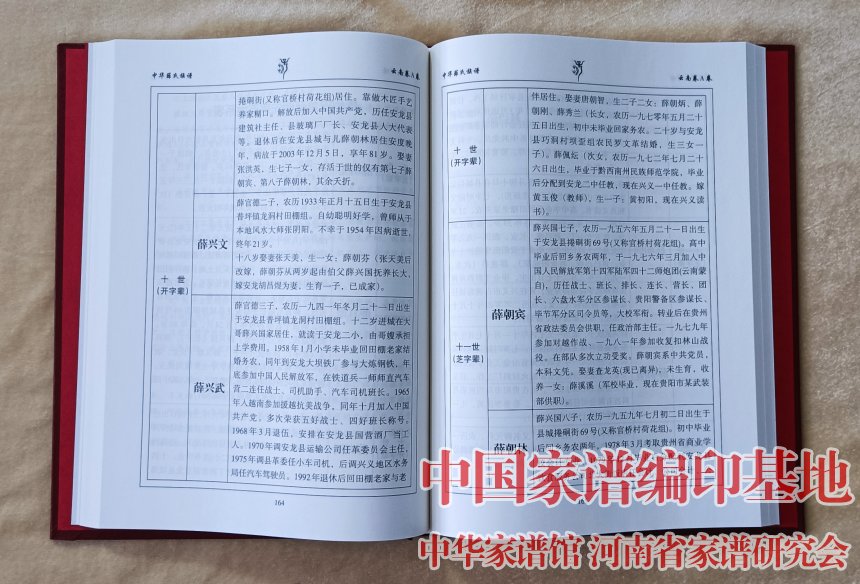 中华薛氏族谱
捲硐街(又称官桥村荷花组)居住。靠做木匠手艺
养家糊口。解放后加入中国共产党，历任安龙县
建筑社主任、县玻璃厂厂长、安龙县人大代表
等。退休后在安龙县城与儿薛朝林居住安度晚
年，病故于2003年12月5日，享年81岁。娶妻
张洪英，生七子一女，存活于世的仅有第七子薛
朝宾、第八子薛朝林，其余夭折。
十 世
(开字辈)
薛兴文
薛官德二子，农历1933年正月十五日生于安龙县
普坪镇龙洞村田棚组。自幼聪明好学，曾师从于
本地风水大师张阴阳。不幸于1954年因病逝世，
终年21岁。
十八岁娶妻张天美，生一女：薛朝芬（张天美后
改嫁，薛朝芬从两岁起由伯父薛兴国抚养长大，
嫁安龙胡昌煜为妻，生育一子，已成家）。
薛兴武
薛官德三子，农历一九四一年冬月二十一日出生
于安龙县普坪镇龙洞村田棚组。十二岁进城在大
哥薛兴国家居住，就读于安龙二小，由哥嫂承担
上学费用。1958年1月小学未毕业回田棚老家结
婚务农，同年到安龙大坝铁厂参与大炼钢铁，年
底参加中国人民解放军，在铁道兵一师师直汽车
营二连任战士、司机助手、汽车司机班长。1965
年人越南参加援越抗美战争，同年十月加入中国
共产党，多次荣获五好战士、四好班长称号。
1968年3月退伍，安排在安龙县国营酒厂当工
人。1970年调安龙县运输公司任革委员会主任，
1975年调县革委任小车司机，后调兴义地区水务
局任汽车驾驶员。1992年退休后回田棚老家与老
164
云南卷八卷
十 世
(开字辈)
伴居住。娶妻唐朝智，生二子二女：薛朝炳、薛
朝刚、薛秀兰（长女，农历一九七零年五月二十
五日出生，初中未毕业回家务农。二十岁与安龙
县巧洞村坝歪组农民罗文革结婚，生三女一
子）。薛佩纭（次女，农历一九七二年七月二十
六日出生，毕业于黔西南州民族师范学院，毕业
后分配到安龙二中任教，现在兴义一中任教。嫁
黄玉俊（教师），生一子：黄初阳，现在兴义读
书）。
十一世
(芝字辈)
薛朝宾
薛兴国七子，农历一九五六年五月二十一日出生
于安龙县捲硐街69号(又称官桥村荷花组)。高中
毕业后回乡务农两年，于一九七六年三月加入中
国人民解放军第十四军陆军四十二师炮团(云南蒙
自)，历任战士、班长、排长、连长、营长、团
长、六盘水军分区参谋长、贵阳警备区参谋长、
毕节军分区司令员等，大校军衔。转业后在贵州
省政法委员会供职，任政治部主任。一九七九年
参加对越作战、一九八一年参加收复扣林山战
役。在部队多次立功受奖。薛朝宾系中共党员，
本科文凭。娶妻查龙英(现已离异)。未生育，收
养一女：薛溪溪（军校毕业，现在贵阳市某武装
部供职）。
薛朝林
薛兴国八子，农历一九五九年七月初二日出生于
县城捲硐街69号(又称官桥村荷花组)。初中毕业
后回乡务农两年，1978年3月考取贵州省商业学
中国家谱编印基地
中华家谱馆 河南省家谱研究会